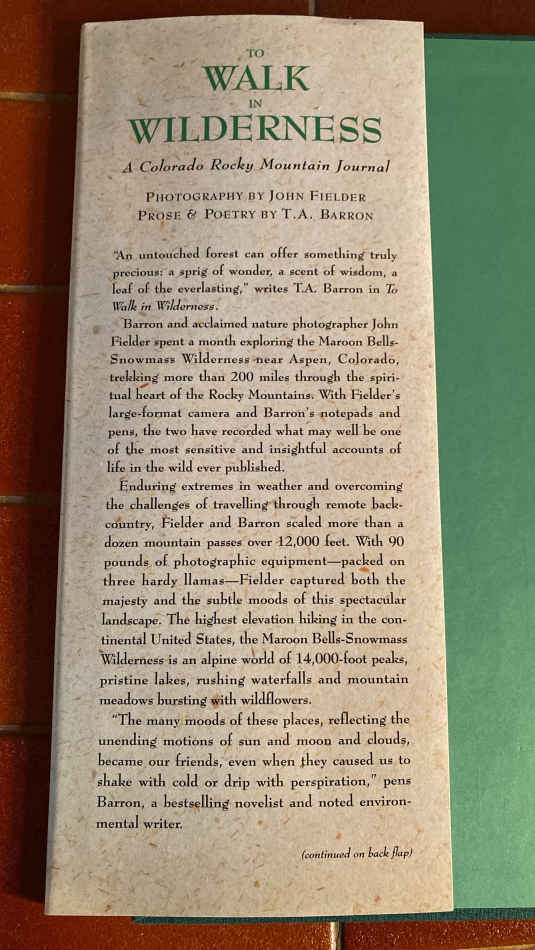 TO
WALK
IN
WILDERNESS
A Colorado Rocky Mountain Journal
PHOTOGRAPHY BY JOHN FIELDER
PROSE & POETRY BY T.A. BARRON
"An untouched forest can offer something truly
precious: a sprig of wonder, a scent of wisdom, a
leaf of the everlasting," writes T.A. Barron in To
Walk in Wilderness.
Barron and acclaimed nature photographer John
Fielder spent a month exploring the Maroon Bells-
Snowmass Wilderness near Aspen, Colorado,
trekking more than 200 miles through the spiri-
tual heart of the Rocky Mountains. With Fielder's
large-format camera and Barron's notepads and
pens, the two have recorded what may well be one
of the most sensitive and insightful accounts of
life in the wild ever published.
Enduring extremes in weather and overcoming
the challenges of travelling through remote back-
country, Fielder and Barron scaled more than a
dozen mountain passes over 12,000 feet. With 90
pounds of photographic equipment—packed on
three hardy llamas—Fielder captured both the
majesty and the subtle moods of this spectacular
landscape. The highest elevation hiking in the con-
tinental United States, the Maroon Bells-Snowmass
Wilderness is an alpine world of 14,000-foot peaks,
pristine lakes, rushing waterfalls and mountain
meadows bursting with wildflowers.
"The many moods of these places, reflecting the
unending motions of sun and moon and clouds,
became our friends, even when they caused us to
shake with cold or drip with perspiration," pens
Barron, a bestselling novelist and noted environ-
mental writer.
(continued on back flap)